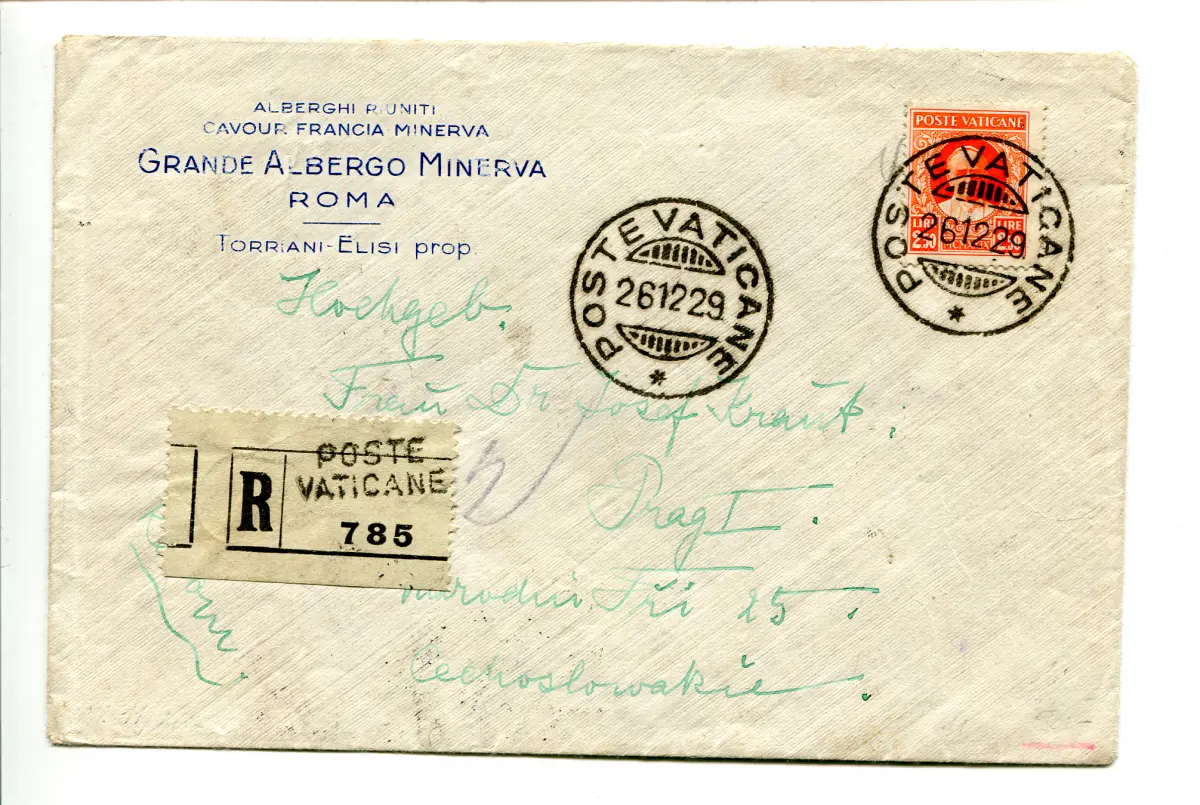 ALBERGHI RIUNITI
CAVOUR FRANCIA MINERVA
GRANDE ALBERGO MINERVA
ROMA
TORRIANI-ELISI prop.
POSTE VATICANE
LIRE LIRE
2.50 2.50
POSTE VATICANE
26 12 29
POSTE VATICANE
26 12 29
Hochgeb.
Frau Dr Josef Kraut.
POSTE
VATICANE
R
785
Prag I.
Narodni Tři 25.
Čechoslowakie.